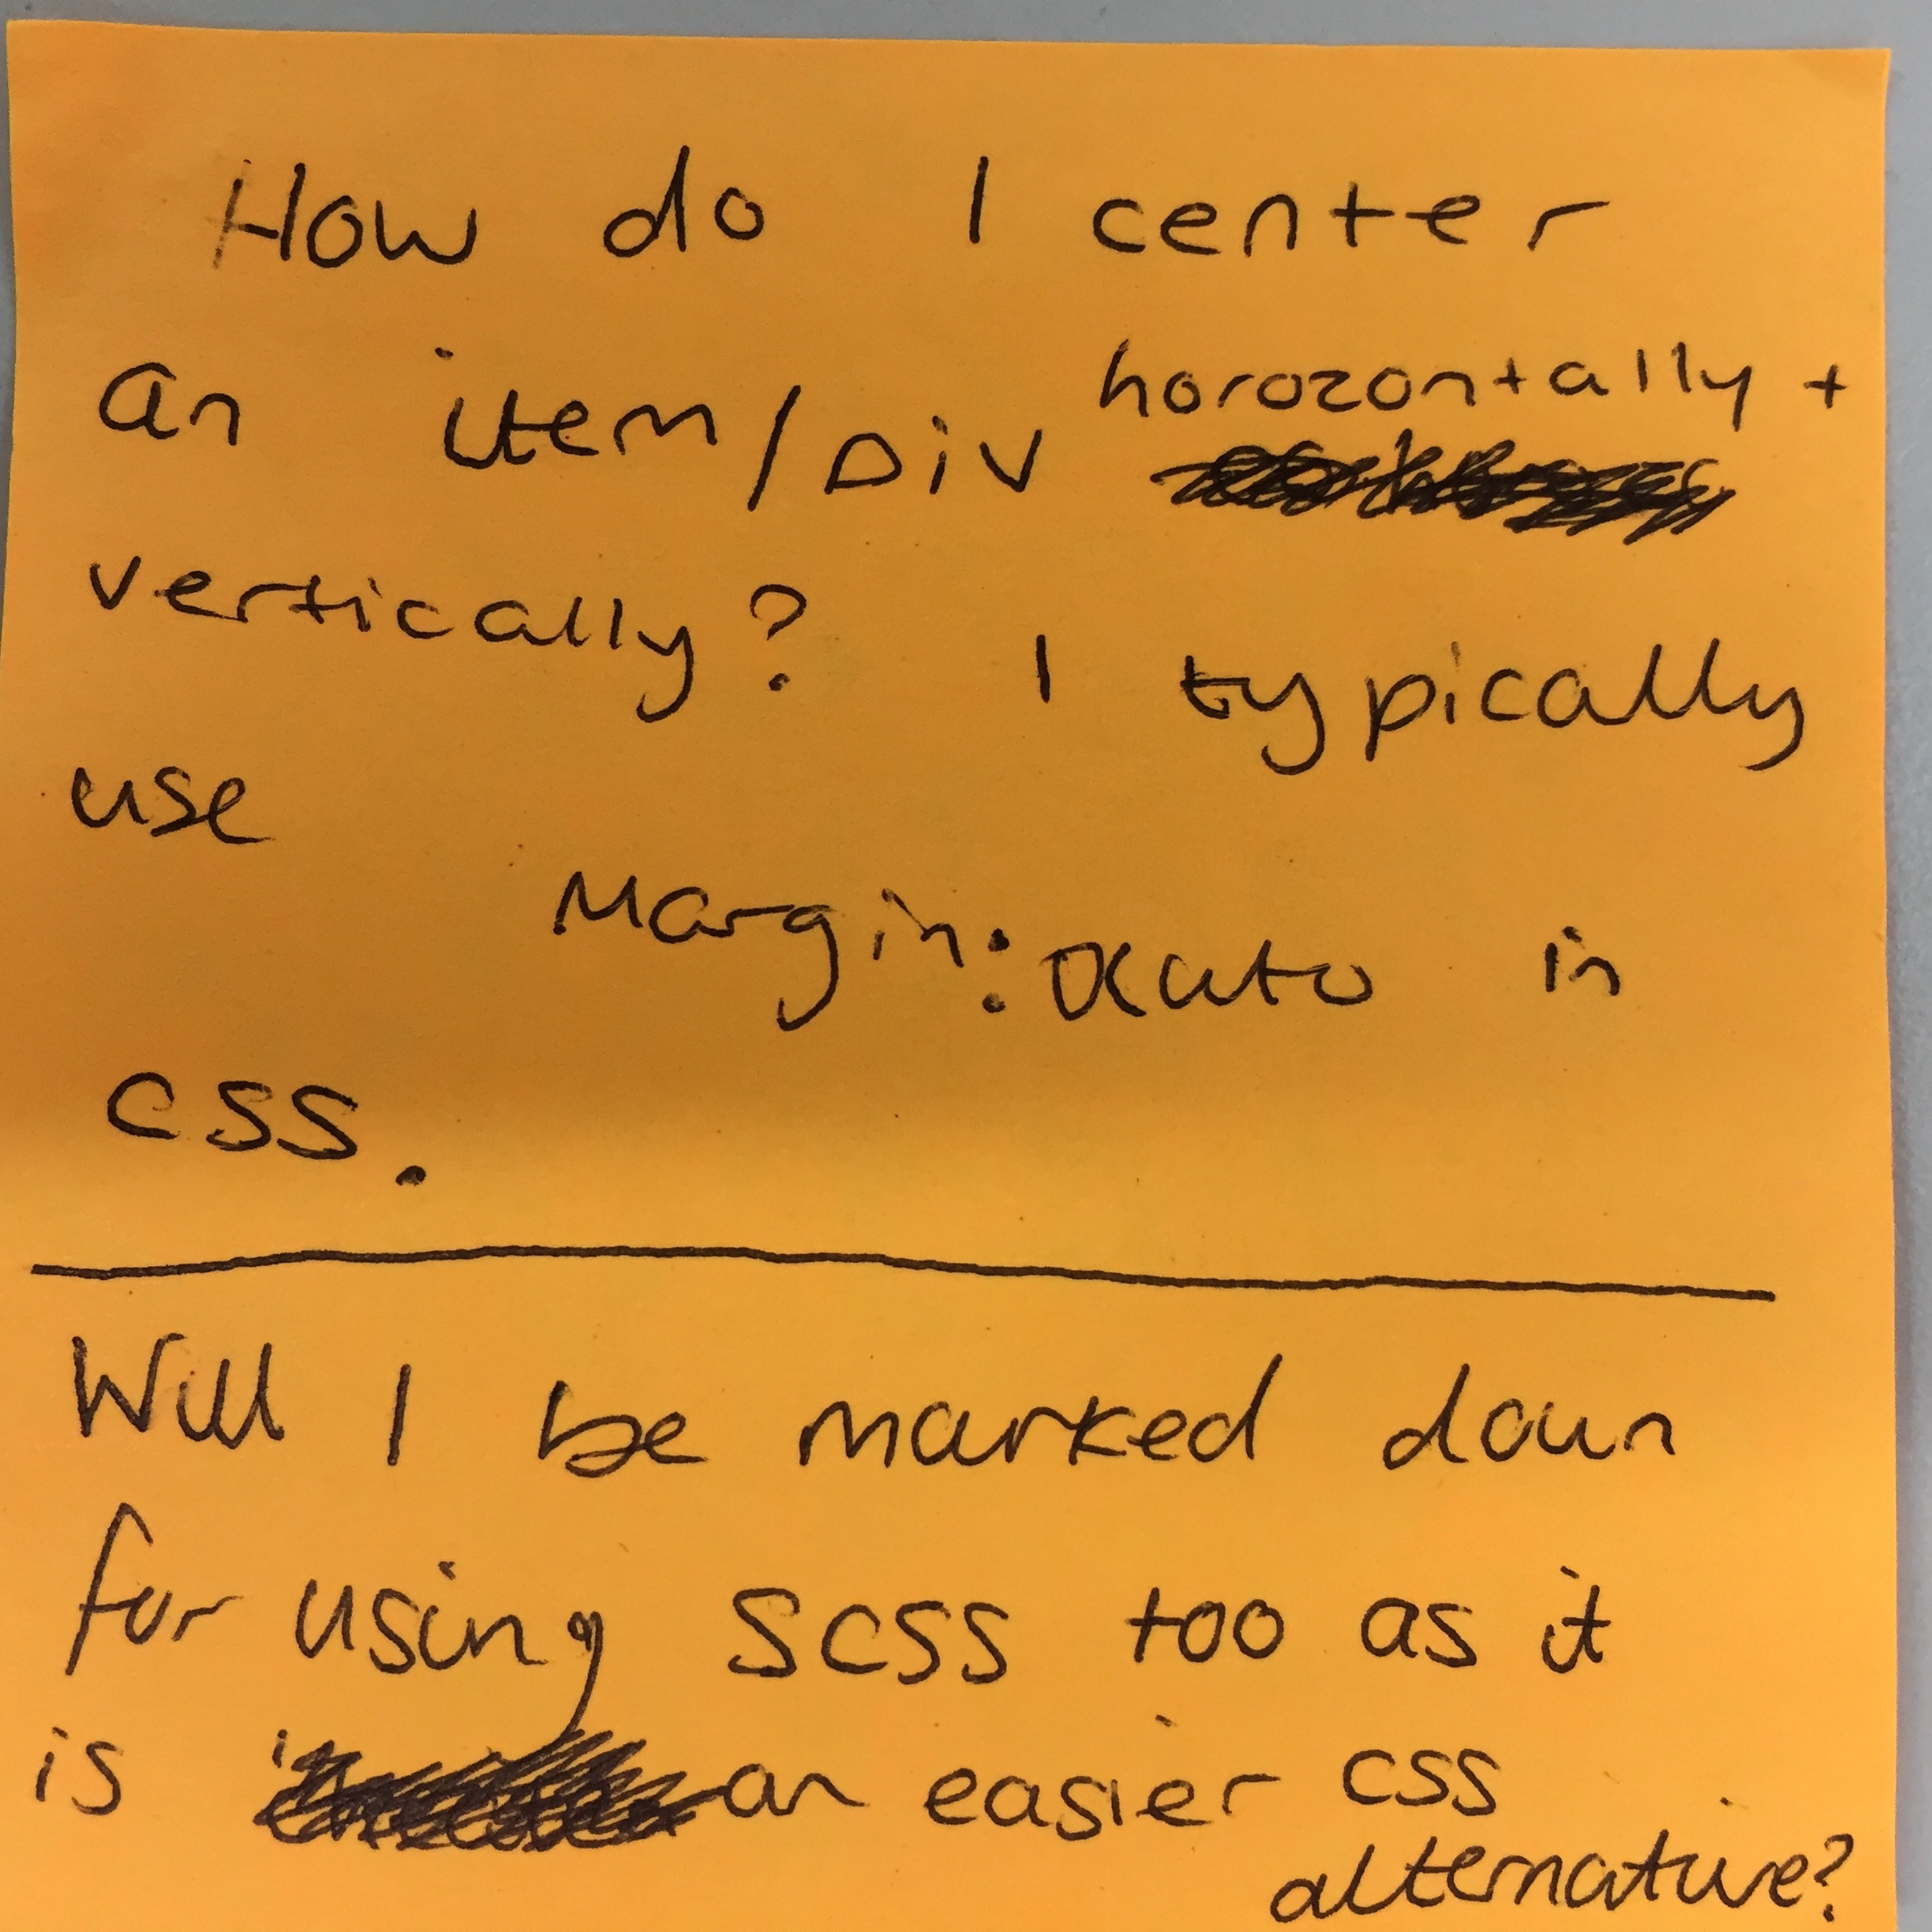 How do I center
an item/Div horozontally +
vertically? I typically
use
Margin: auto in
css.
Will I be marked down
for using SCSS too as it
is an easier css
alternative?